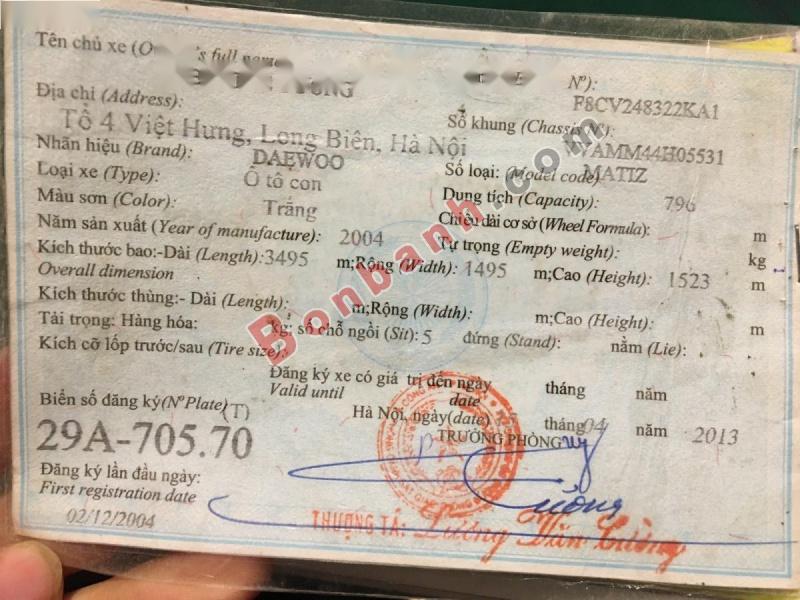 Tên chủ xe (O 's full name
UNG
Nº):
Địa chỉ (Address):
F8CV248322KA1
Tổ 4 Việt Hưng, Long Biên, Hà Nội
Số khung (Chassis Nº):
Nhãn hiệu (Brand): DAEWOO
VAMM44H05531
Loại xe (Type): Ô tô con
Số loại: (Model code) MATIZ
Màu sơn (Color): Trắng
Dung tích (Capacity): 796
Năm sản xuất (Year of manufacture): 2004
Chiều dài cơ sở (Wheel Formula): m
Tự trọng (Empty weight): kg
Kích thước bao:-Dài (Length):3495 m;Rộng (Width): 1495 m;Cao (Height): 1523 m
Overall dimension
Kích thước thùng:- Dài (Length): m;Rộng (Width): m;Cao (Height): m
Tải trọng: Hàng hóa: kg: số chỗ ngồi (Sit): 5 đứng (Stand): nằm (Lie):
Kích cỡ lốp trước/sau (Tire size):
Đăng ký xe có giá trị đến ngày tháng năm
Valid until date
Biển số đăng ký(NºPlate)(T)
Hà Nội, ngày(date) tháng 04 năm 2013
29A-705.70
TRƯỞNG PHÒNG
Đăng ký lần đầu ngày:
First registration date
02/12/2004
Cường
THƯỢNG TÁ: Lương Văn Cường
Bonbanh.com